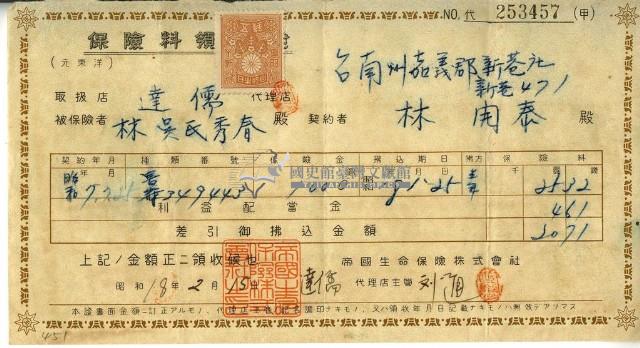 NO.代 253457 (甲)
保險料領
(元東洋)
台南州嘉義郡新巷社
新巷471
取扱店 達儒 代理店
被保險者 林吳氏秀春 殿 契約者 林開泰 殿
契約年月 種類 番號 保險金 拂込期日 拂方 保險料
昭和 7.7.25 349443 25 2532
利益配當金 461
差引御拂込金額 2071
國史館臺灣文獻館
上記ノ金額正ニ領收候也 帝國生命保險株式會社
昭和 18年 2月 15日 達儒 代理店主管
本證書面金額ニ訂正アルモノ、代理店主管ノ記名調印ナキモノ、又ハ領收年月日記載ナキモノハ無效デアリマス
451